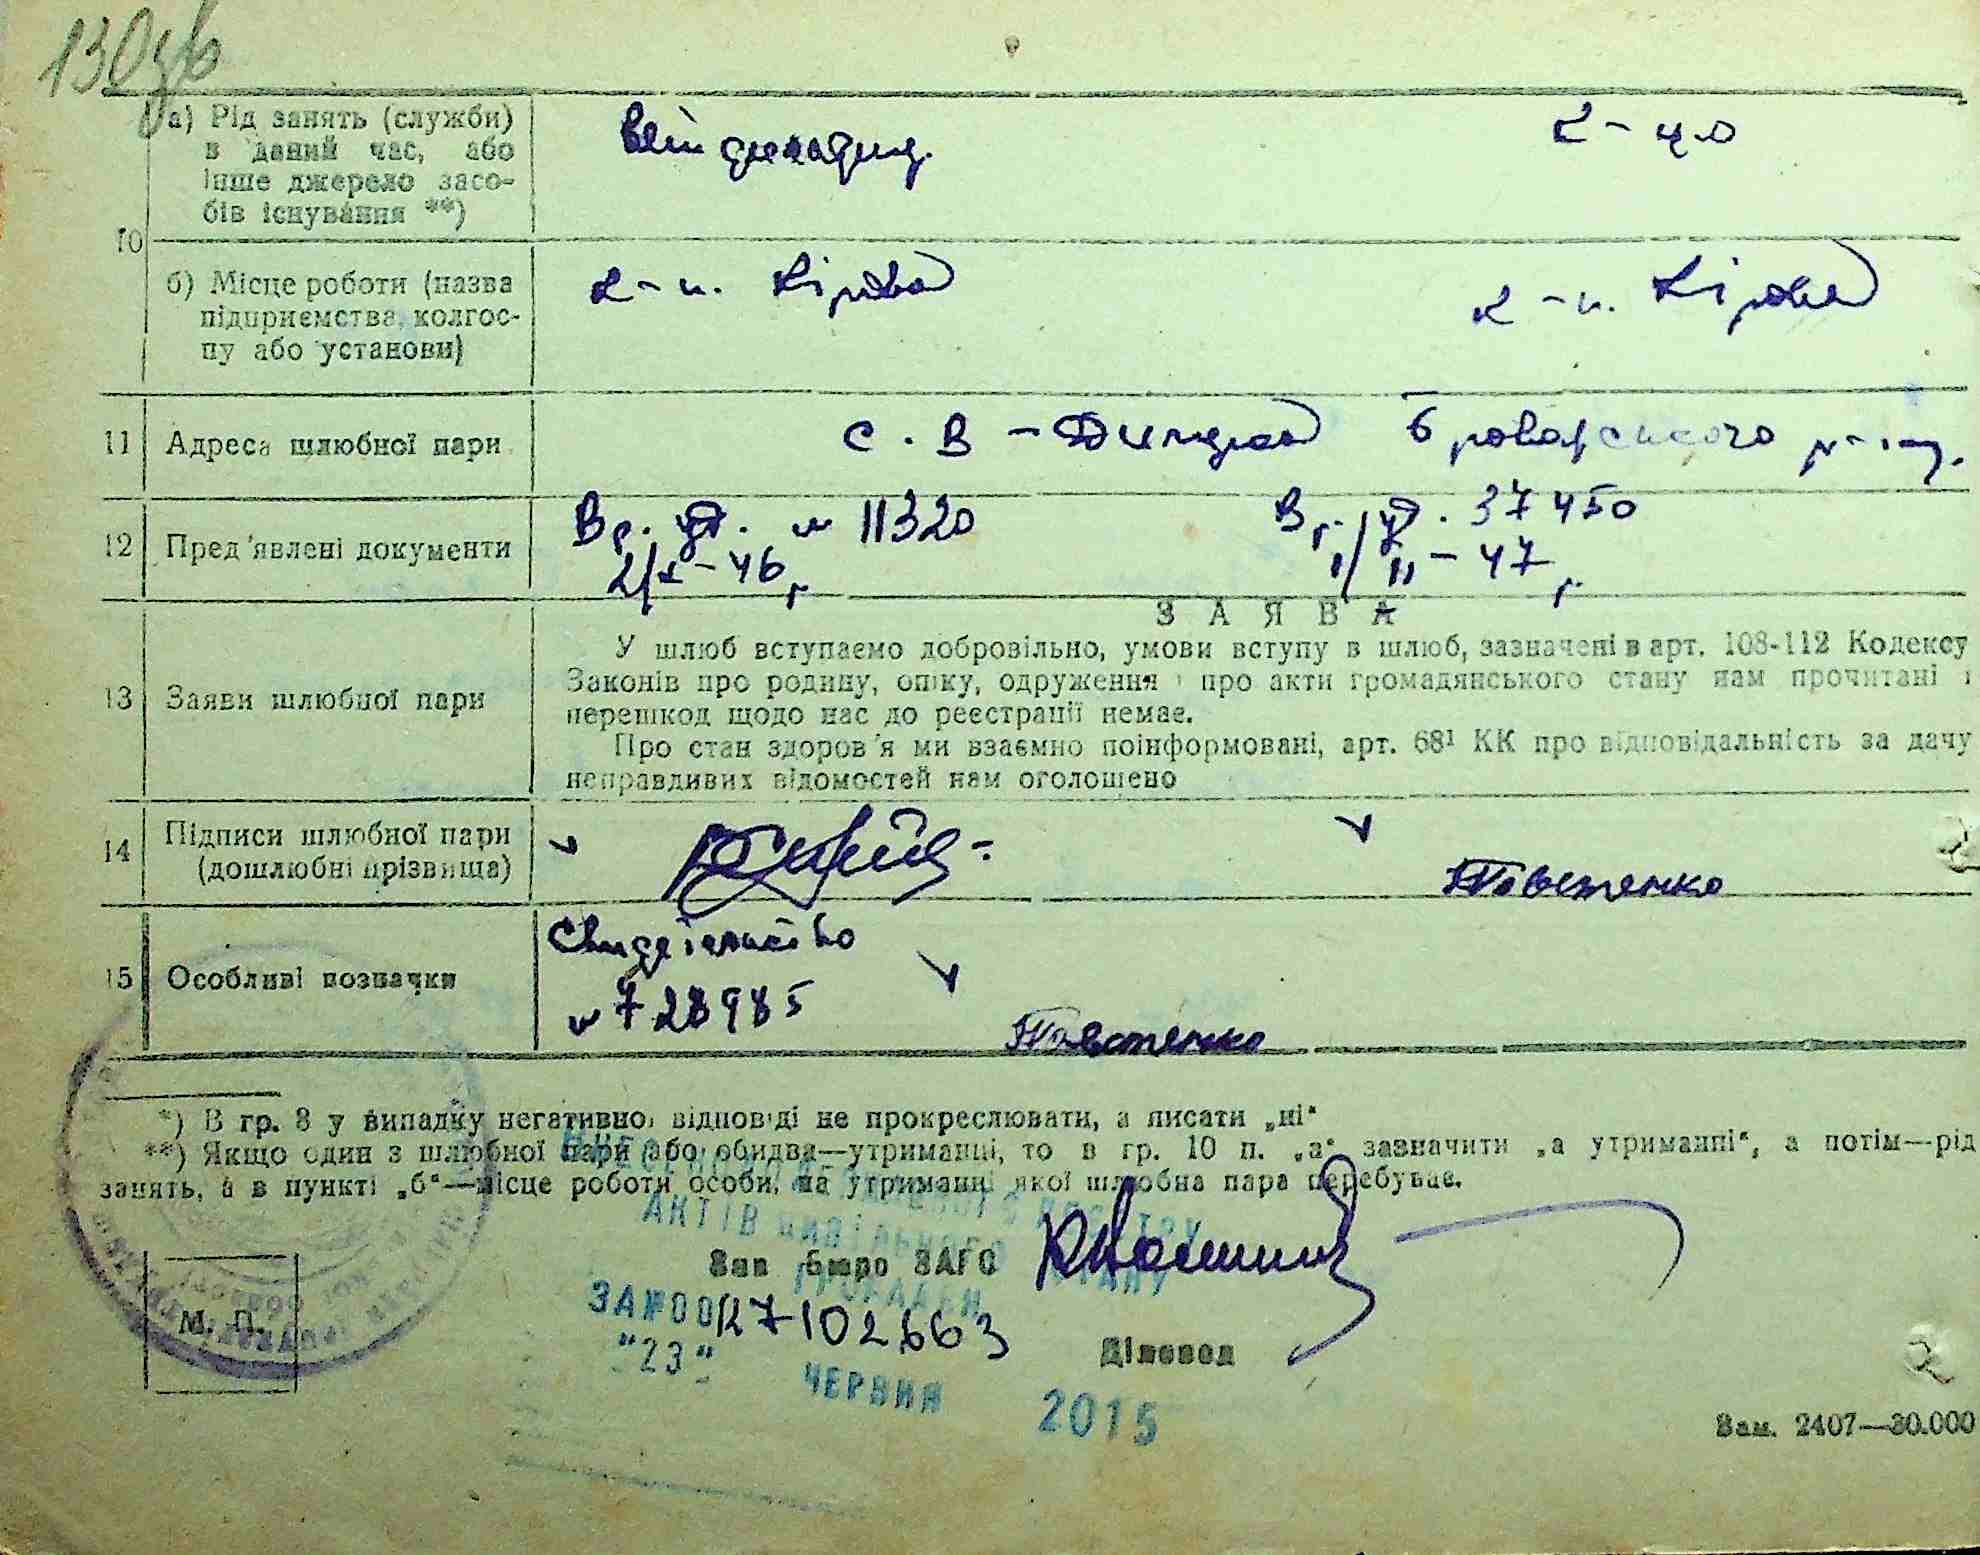 130зв
а) Рід занять (служби)
в даний час, або
інше джерело засо-
бів існування **)
к-ця
10
б) Місце роботи (назва
підприємства, колгос-
пу або установи)
к-п. Кірова
к-п. Кірова
11 Адреса шлюбної пари
с. В-Димерка Броварського р-ну.
12 Пред'явлені документи
Вр. уд. № 11320
2/X-46 р
Вр. уд. 37450
1/II-47 р.
ЗАЯВА
13 Заяви шлюбної пари
У шлюб вступаємо добровільно, умови вступу в шлюб, зазначені в арт. 108-112 Кодексу
Законів про родину, опіку, одруження і про акти громадянського стану нам прочитані і
перешкод щодо нас до реєстрації немає.
Про стан здоров'я ми взаємно поінформовані, арт. 68¹ КК про відповідальність за дачу
неправдивих відомостей нам оголошено
14 Підписи шлюбної пари
(дошлюбні прізвища)
Товстенко
15 Особливі позначки
Свидетельство
№ 728985
Товстенко
*) В гр. 8 у випадку негативної відповіді не прокреслювати, а писати „ні“
**) Якщо один з шлюбної пари або обидва—утриманці, то в гр. 10 п. „а“ зазначити „а утриманні“, а потім—рід
занять, а в пункті „б“—місце роботи особи, на утриманні якої шлюбна пара перебуває.
АКТІВ ЦИВІЛЬНОГО
Зав бюро ЗАГС
ГРОМАДЯН СТАНУ
ЗА №00127102663
М. П.
Діловод
"23" ЧЕРВНЯ 2015
Зам. 2407—30.000